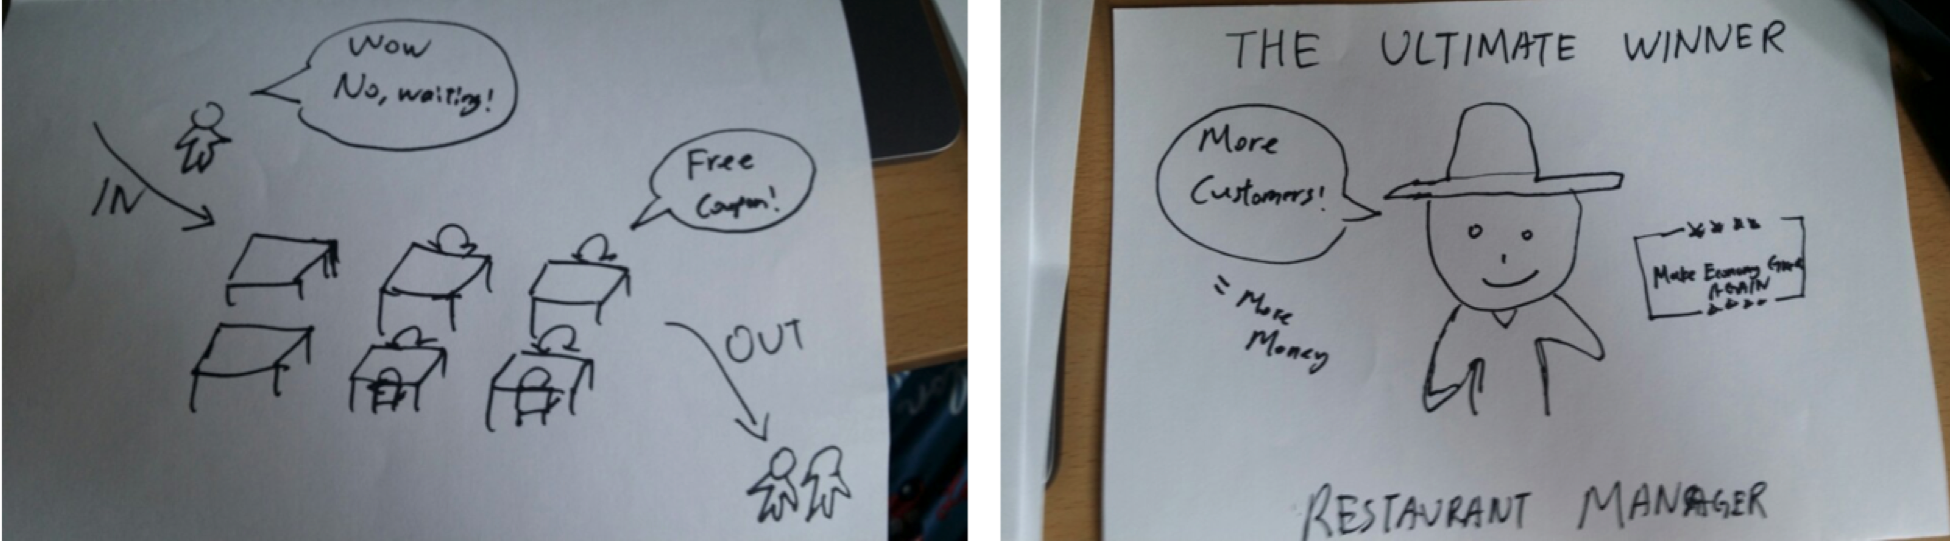 Wow
No, waiting!
IN
Free
Coupon!
OUT
THE ULTIMATE WINNER
More
Customers!
= More
Money
Make Economy Great
AGAIN
RESTAURANT MANAGER